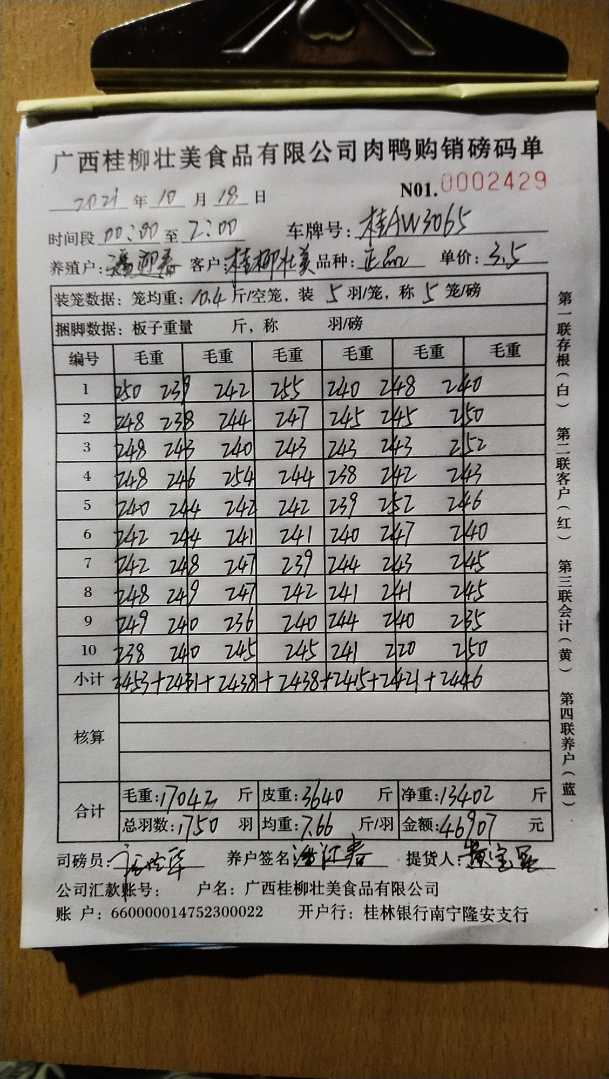 广西桂柳壮美食品有限公司肉鸭购销磅码单
2021 年 10 月 18 日 N01.0002429
时间段 00:00 至 2:00 车牌号: 桂AW3065
养殖户: 客户: 桂柳壮美 品种: 正品 单价: 3.5
装笼数据: 笼均重: 10.4 斤/空笼, 装 5 羽/笼, 称 5 笼/磅
捆脚数据: 板子重量 斤, 称 羽/磅
编号 毛重 毛重 毛重 毛重 毛重 毛重
1 250 239 242 255 240 248 240
2 248 238 244 247 245 245 250
3 248 243 240 243 243 243 252
4 248 246 254 244 238 242 243
5 240 244 242 242 239 252 246
6 242 244 241 241 240 247 240
7 242 248 247 239 244 243 245
8 248 249 247 242 241 241 245
9 249 240 236 240 244 240 235
10 238 240 245 245 241 220 250
小计 2453+2431+2438+2438+2415+2421+2446
核算
合计
毛重: 17042 斤 皮重: 3640 斤 净重: 13402 斤
总羽数: 1750 羽 均重: 7.66 斤/羽 金额: 46907 元
司磅员: 养户签名 提货人:
公司汇款账号: 户名: 广西桂柳壮美食品有限公司
账 户: 660000014752300022 开户行: 桂林银行南宁隆安支行
第一联存根(白)
第二联客户(红)
第三联会计(黄)
第四联养户(蓝)